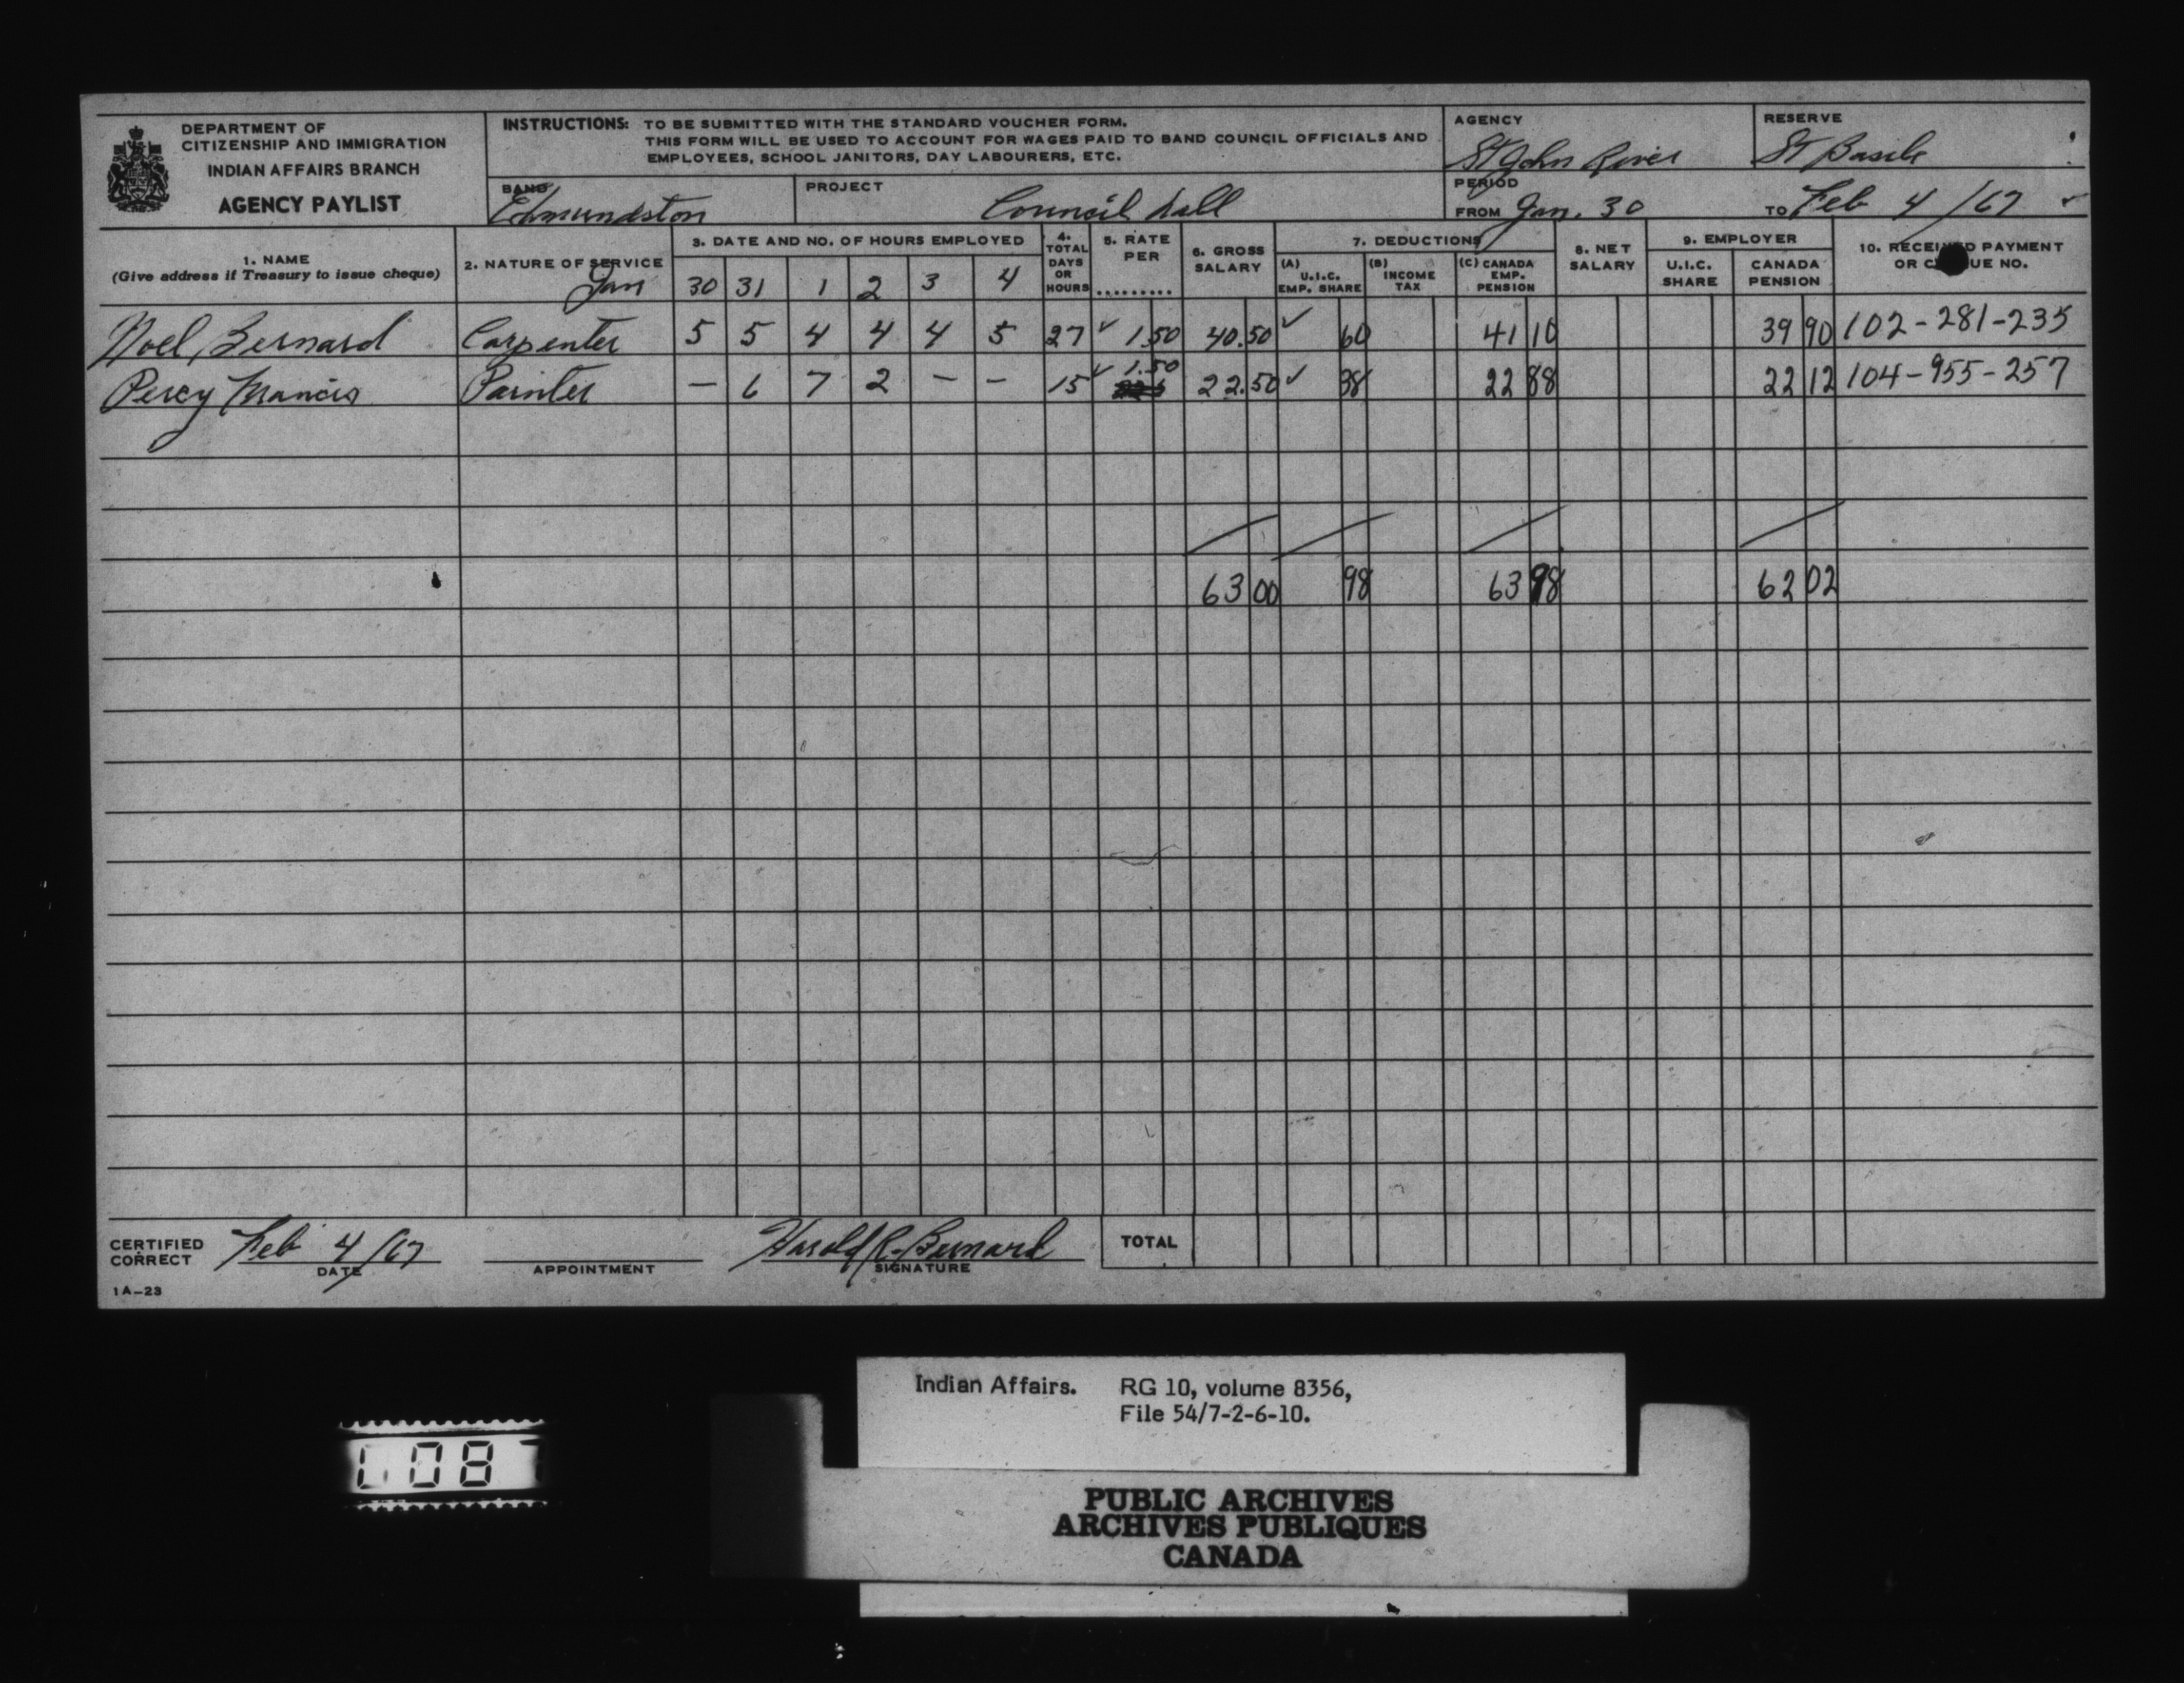 DEPARTMENT OF
CITIZENSHIP AND IMMIGRATION
INDIAN AFFAIRS BRANCH
AGENCY PAYLIST
INSTRUCTIONS: TO BE SUBMITTED WITH THE STANDARD VOUCHER FORM.
THIS FORM WILL BE USED TO ACCOUNT FOR WAGES PAID TO BAND COUNCIL OFFICIALS AND
EMPLOYEES, SCHOOL JANITORS, DAY LABOURERS, ETC.
AGENCY
St John River
RESERVE
St Basile
BAND
Edmundston
PROJECT
Council hall
PERIOD
FROM Jan. 30 TO Feb 4/67
1. NAME
(Give address if Treasury to issue cheque)
2. NATURE OF SERVICE
Jan
3. DATE AND NO. OF HOURS EMPLOYED
30 31 1 2 3 4
4. TOTAL DAYS OR HOURS
5. RATE PER .........
6. GROSS SALARY
7. DEDUCTIONS
(A) U.I.C. EMP. SHARE
(B) INCOME TAX
(C) CANADA EMP. PENSION
8. NET SALARY
9. EMPLOYER
U.I.C. SHARE
CANADA PENSION
10. RECEIVED PAYMENT
OR UE NO.
Noel Bernard Carpenter 5 5 4 4 4 5 27 ✓ 1.50 40.50 ✓ 60 41 10 39 90 102-281-235
Percy Francis Painter — 6 7 2 — — 15 ✓ 1.50 22.50 ✓ 38 22 88 22 12 104-955-257
63 00 98 63 98 62 02
CERTIFIED
CORRECT
Feb 4/67
DATE
APPOINTMENT
Harold R. Bernard
SIGNATURE
TOTAL
1A-23
Indian Affairs. RG 10, volume 8356,
File 54/7-2-6-10.
PUBLIC ARCHIVES
ARCHIVES PUBLIQUES
CANADA
08